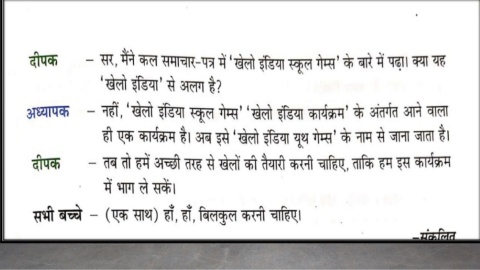 दीपक – सर, मैंने कल समाचार-पत्र में 'खेलो इंडिया स्कूल गेम्स' के बारे में पढ़ा। क्या यह
'खेलो इंडिया' से अलग है?
अध्यापक – नहीं, 'खेलो इंडिया स्कूल गेम्स' 'खेलो इंडिया कार्यक्रम' के अंतर्गत आने वाला
ही एक कार्यक्रम है। अब इसे 'खेलो इंडिया यूथ गेम्स' के नाम से जाना जाता है।
दीपक – तब तो हमें अच्छी तरह से खेलों की तैयारी करनी चाहिए, ताकि हम इस कार्यक्रम
में भाग ले सकें।
सभी बच्चे – (एक साथ) हाँ, हाँ, बिलकुल करनी चाहिए।
–संकलित